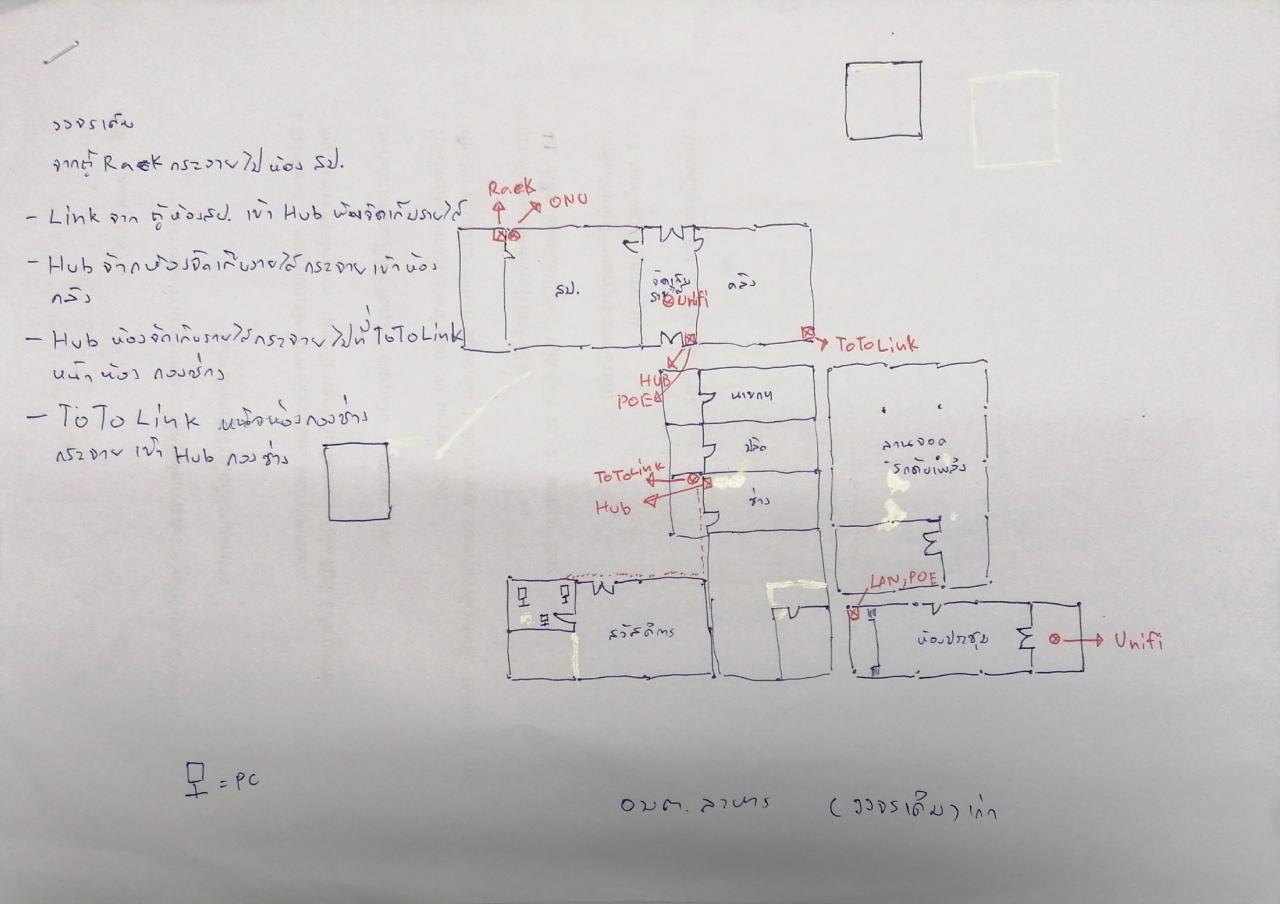 วงจรเดิม
จากตู้ Rack กระจายไปห้อง สป.
- Link จาก ตู้ห้องสป. เข้า Hub ห้องจัดเก็บรายได้
- Hub จากห้องจัดเก็บรายได้กระจายเข้าห้อง
คลัง
- Hub ห้องจัดเก็บรายได้กระจายไปที่ ToToLink
หน้าห้อง กองช่าง
- ToTo Link หน้าห้องกองช่าง
กระจายเข้า Hub กองช่าง
Rack
ONU
สป.
จัดเก็บ
คลัง
Unifi
ToToLink
HUB
POE
นายกฯ
ปลัด
ลานจอด
รถดับเพลิง
ToToLink
Hub
ช่าง
LAN, POE
สวัสดิการ
ห้องประชุม
Unifi
= PC
อบต. ลาหาร (วงจรเดิม) เก่า